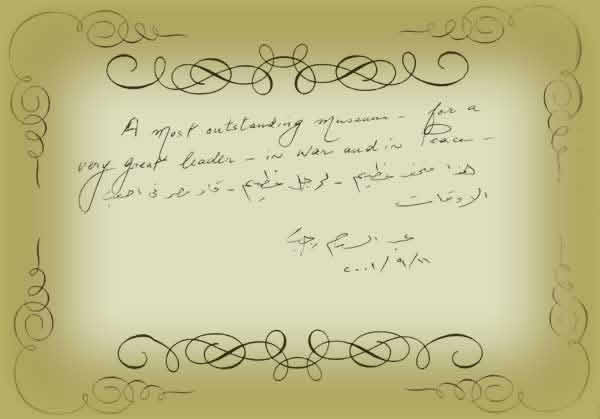 A most outstanding museum - for a
very great leader - in war and in Peace -
هذا متحف عظيم - لرجل عظيم - قاد مصر فى اصعب
الاوقات
عبد الرحيم
٢٠٠١/٩/١١